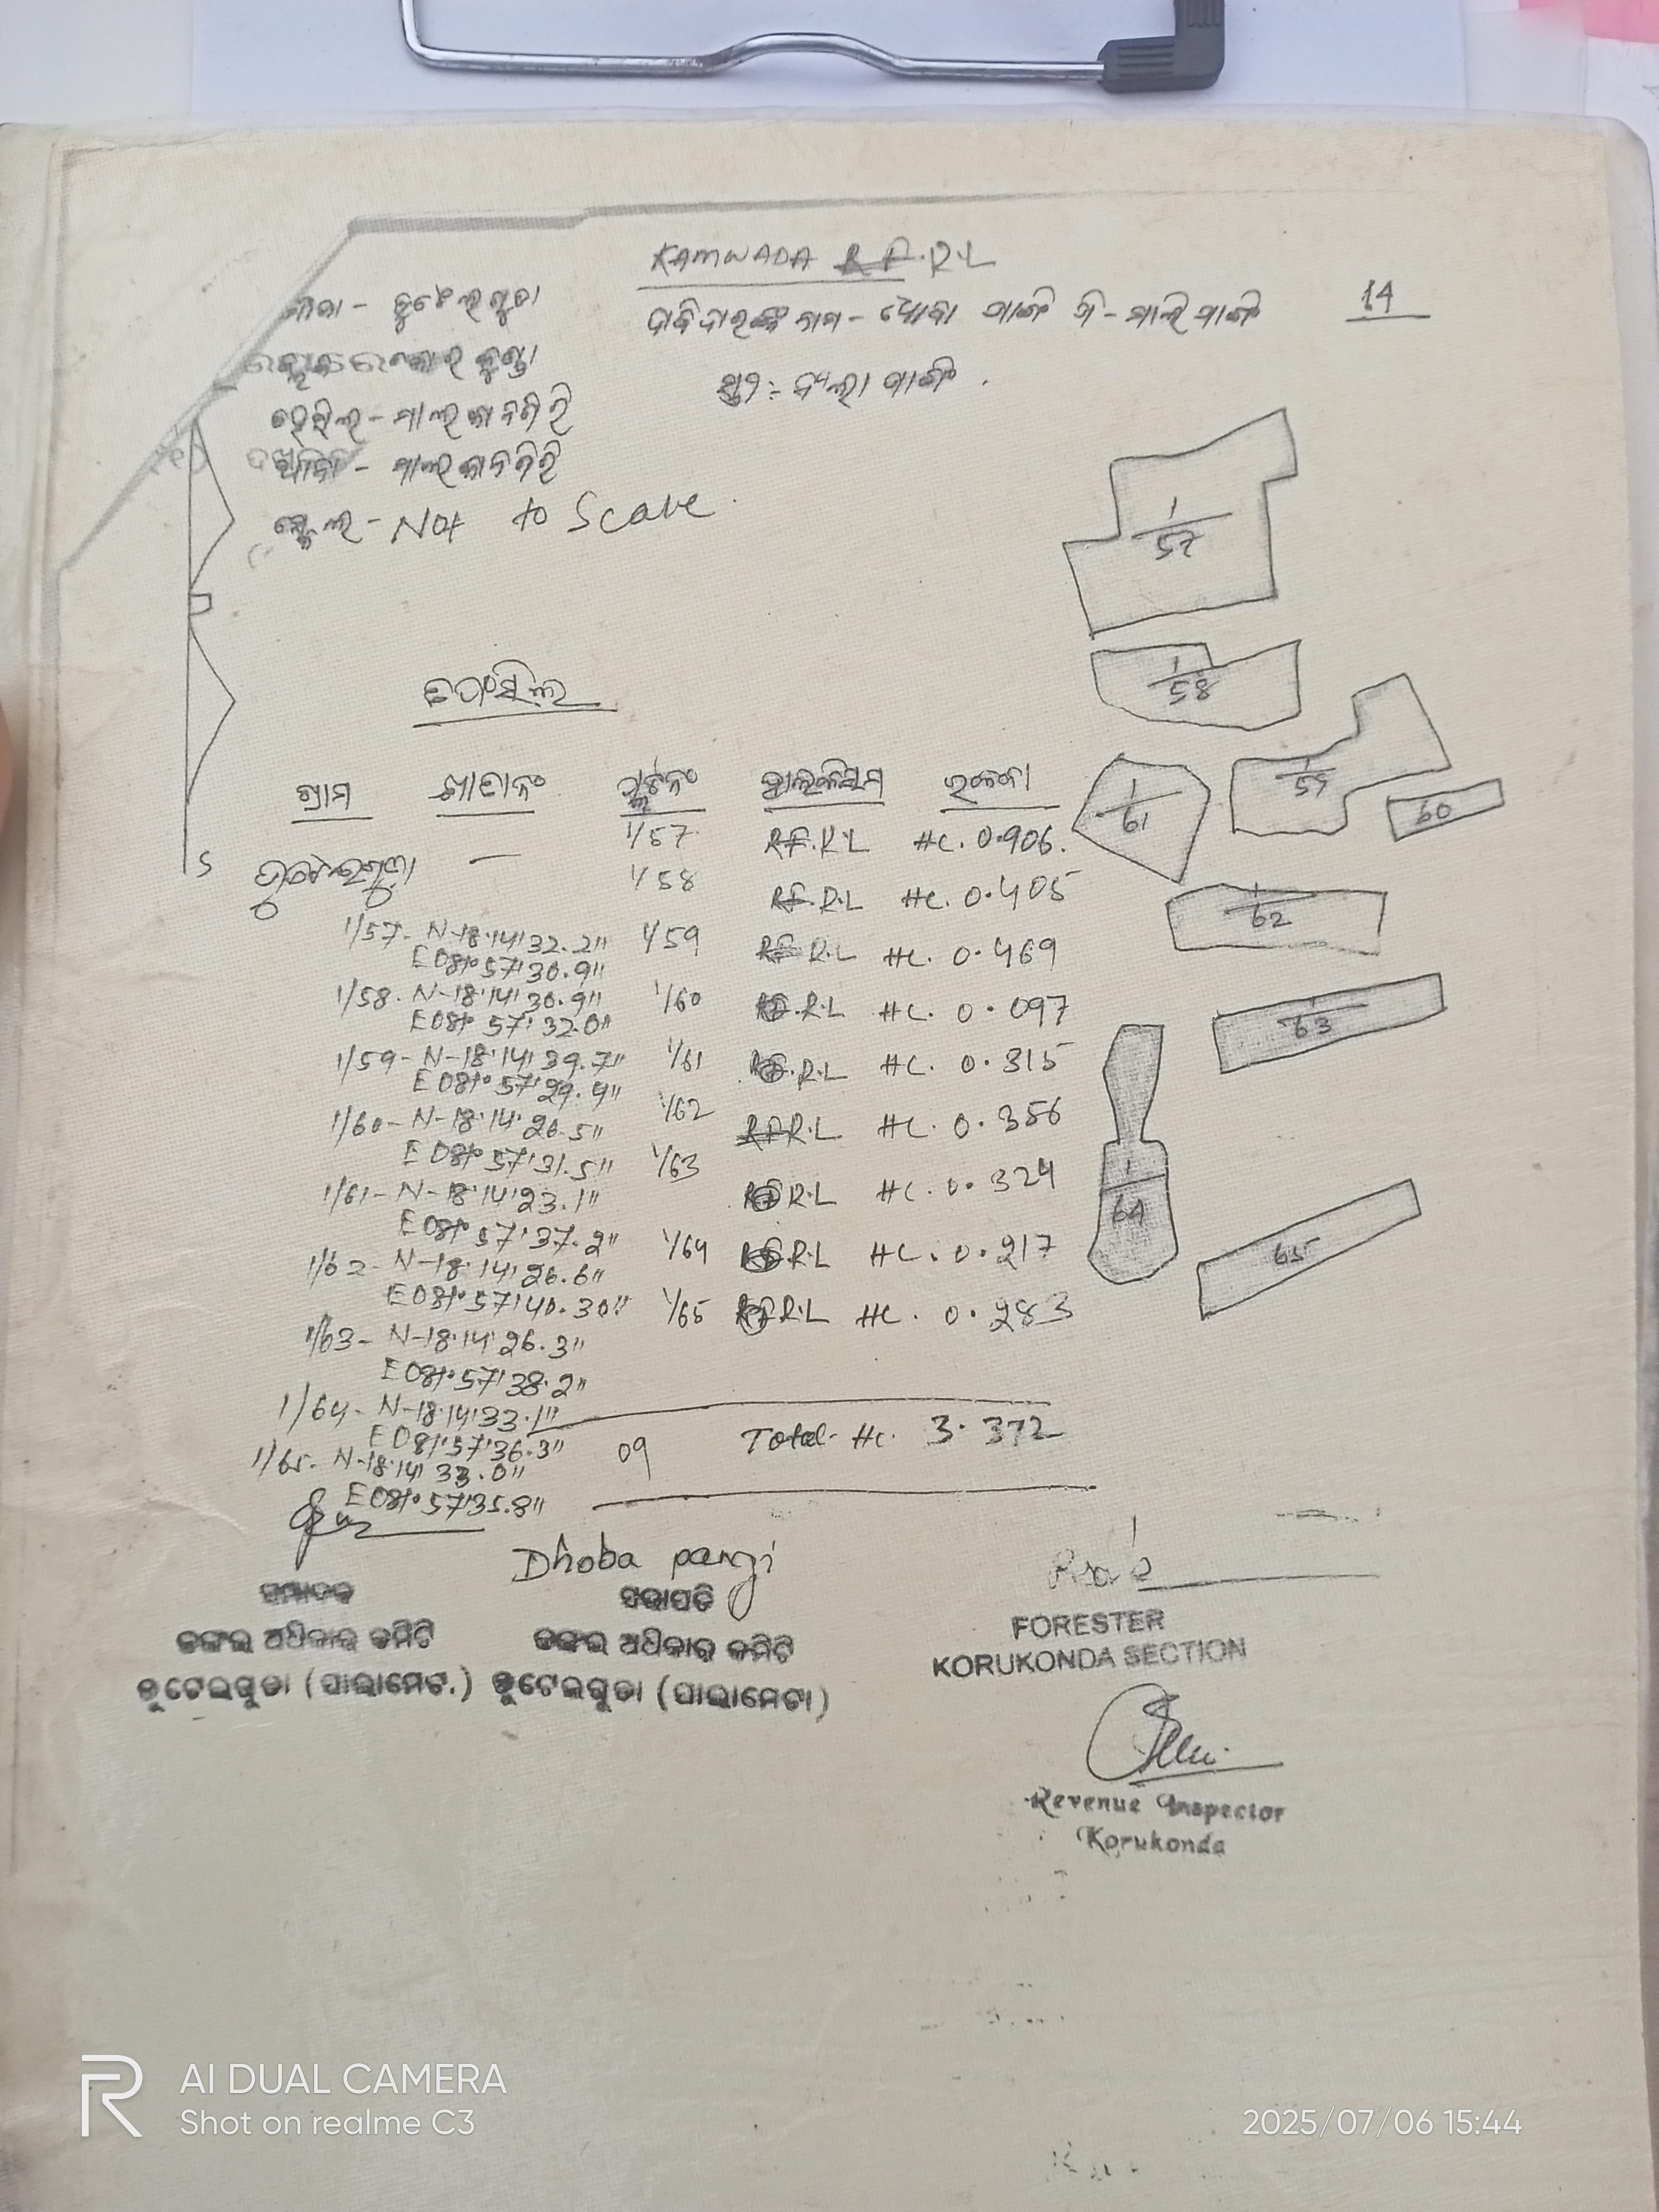 KAMWADA R.F.R.L
14
ମୌଜା - ଭୁଟେଲଗୁଡା
ଦାବିଦାରଙ୍କ ନାମ - ଧୋବା ପାଙ୍ଗି ପି - ମାଲି ପାଙ୍ଗି
କୋରୁକୁଣ୍ଡା
ସ୍ତ୍ରୀ :- ପାଙ୍ଗି
ତହସିଲ - ମାଲକାନଗିରି
ଥାନା - ମାଲକାନଗିରି
ସ୍କେଲ - Not to Scale
ତପସିଲ
ଗ୍ରାମ ଖାତା ନଂ ପ୍ଲଟ ନଂ କିସମ ରକବା
ଭୁଟେଲଗୁଡା —
1/57 RF.R.L HC. 0.906.
1/58 RF.R.L HC. 0.405
1/59 RF.R.L HC. 0.469
1/60 RF.R.L HC. 0.097
1/61 RF.R.L HC. 0.315
1/62 RF.R.L HC. 0.356
1/63 RF.R.L HC. 0.324
1/64 RF.R.L HC. 0.217
1/65 RF.R.L HC. 0.283
1/57- N-18°14'32.2"
E081°57'30.9"
1/58- N-18°14'30.9"
E081°57'32.0"
1/59- N-18°14'39.7"
E081°57'29.4"
1/60- N-18°14'26.5"
E081°57'31.5"
1/61- N-18°14'23.1"
E081°57'37.2"
1/62- N-18°14'26.6"
E081°57'40.30"
1/63- N-18°14'26.3"
E081°57'38.2"
1/64- N-18°14'33.1"
E081°57'36.3"
1/65- N-18°14'33.0"
E081°57'35.8"
09 Total- Hc. 3.372
1/57
1/58
1/59
60
1/61
1/62
1/63
1/64
65
S
Dhoba pangi
ସମ୍ପାଦକ
ଜଙ୍ଗଲ ଅଧିକାର କମିଟି
ଭୁଟେଲଗୁଡା (ପାଲାମେଟା)
ସଭାପତି
ଜଙ୍ଗଲ ଅଧିକାର କମିଟି
ଭୁଟେଲଗୁଡା (ପାଲାମେଟା)
FORESTER
KORUKONDA SECTION
Revenue Inspector
Korukonda
AI DUAL CAMERA
Shot on realme C3
2025/07/06 15:44